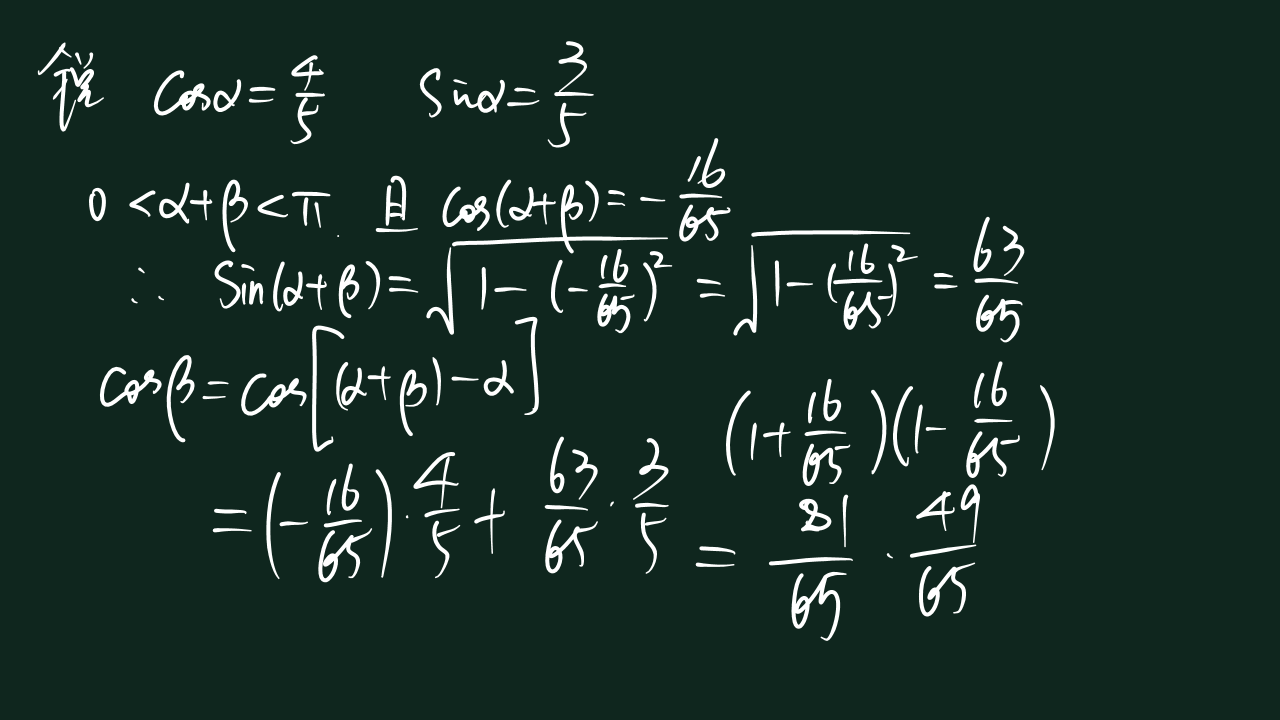 锐 cosα = 4/5 sinα = 3/5
0 < α+β < π 且 cos(α+β) = - 16/65
∴ sin(α+β) = √(1-(-16/65)²) = √(1-(16/65)²) = 63/65
cosβ = cos[(α+β)-α]
(1+16/65)(1-16/65)
= (-16/65)·4/5 + 63/65·3/5
= 81/65 · 49/65